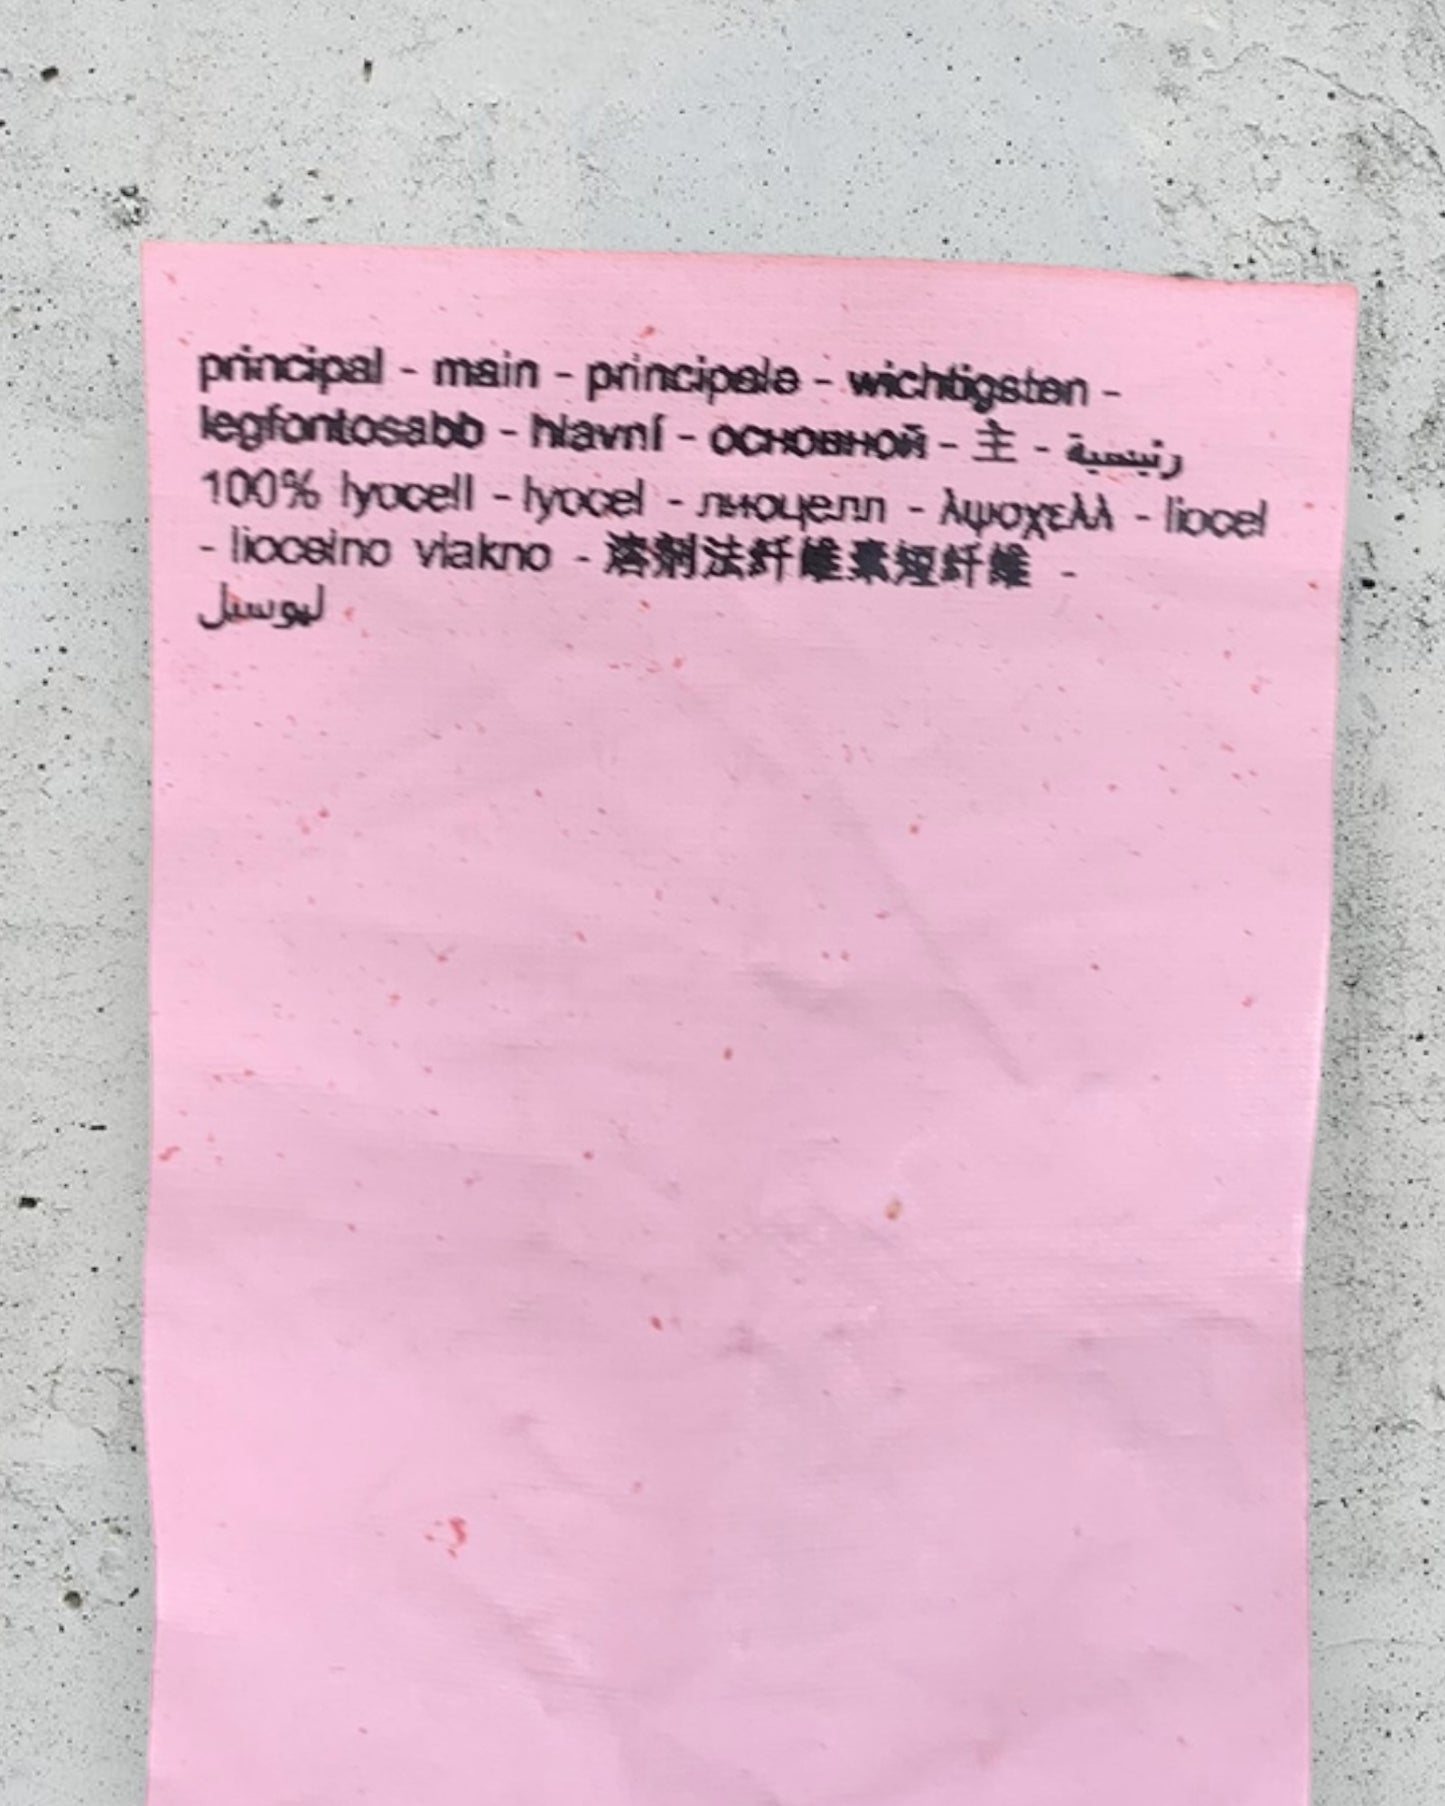 principal - main - principale - wichtigsten -
legfontosabb - hlavní - основной - 主 - رئيسية
100% lyocell - lyocel - лиоцелл - λψοχελλ - liocel
- liocelno vlakno - 溶剂法纤维素短纤维 -
ليوسيل